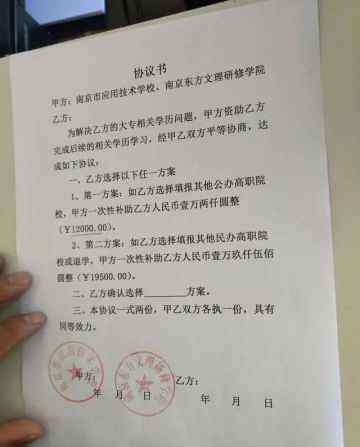 协议书
甲方：南京市应用技术学校、南京东方文理研修学院
乙方：
为解决乙方的大专相关学历问题，甲方资助乙方
完成后续的相关学历学习，经甲乙双方平等协商，达
成如下协议：
一、乙方选择以下任一方案
1、第一方案：如乙方选择填报其他公办高职院
校，甲方一次性补助乙方人民币壹万两仟圆整
（￥12000.00）。
2、第二方案：如乙方选择填报其他民办高职院
校或退学，甲方一次性补助乙方人民币壹万玖仟伍佰
圆整（￥19500.00）。
二、乙方确认选择________方案。
三、本协议一式两份，甲乙双方各执一份，具有
同等效力。
甲方： 乙方：
年 月 日 年 月 日